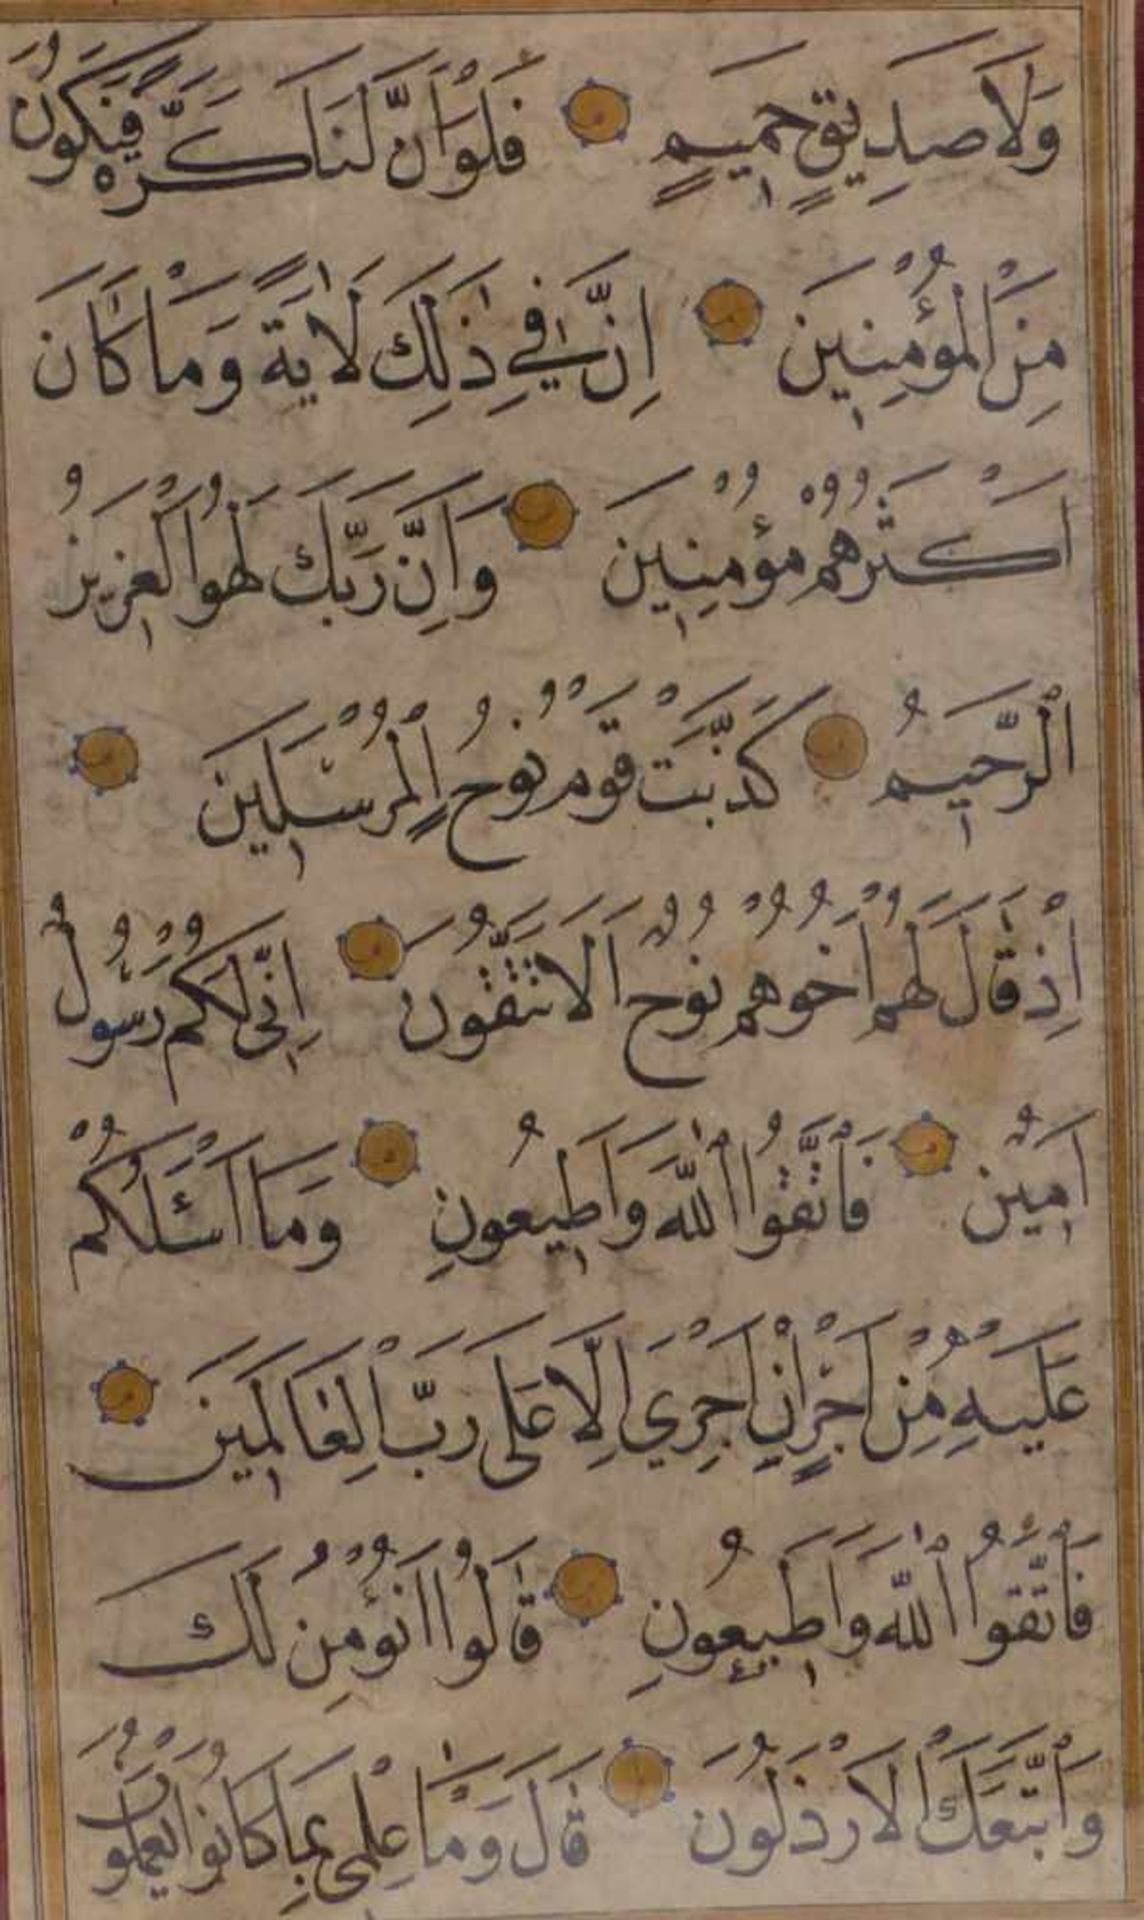 وَلَا صَدِيقٍ حَمِيمٍ فَلَوْ اَنَّ لَنَا كَرَّةً فَنَكُونُ
مِنَ الْمُؤْمِنِينَ اِنَّ فِي ذَلِكَ لَاٰيَةً وَمَا كَانَ
اَكْثَرُهُمْ مُؤْمِنِينَ وَاِنَّ رَبَّكَ لَهُوَ الْعَزِيزُ
الْرَّحِيمُ كَذَّبَتْ قَوْمُ نُوحٍ الْمُرْسَلِينَ
اِذْ قَالَ لَهُمْ اَخُوهُمْ نُوحٌ اَلَا تَتَّقُونَ اِنِّى لَكُمْ رَسُولٌ
اَمِينٌ فَاتَّقُوا اللّٰهَ وَاَطِيعُونِ وَمَا اَسْئَلُكُمْ
عَلَيْهِ مِنْ اَجْرٍ اِنْ اَجْرِيَ اِلَّا عَلَى رَبِّ الْعَالَمِينَ
فَاتَّقُوا اللّٰهَ وَاَطِيعُونِ قَالُوا اَنُؤْمِنُ لَكَ
وَاتَّبَعَكَ الْاَرْذَلُونَ قَالَ وَمَا عِلْمِى بِمَا كَانُوا يَعْمَلُونَ